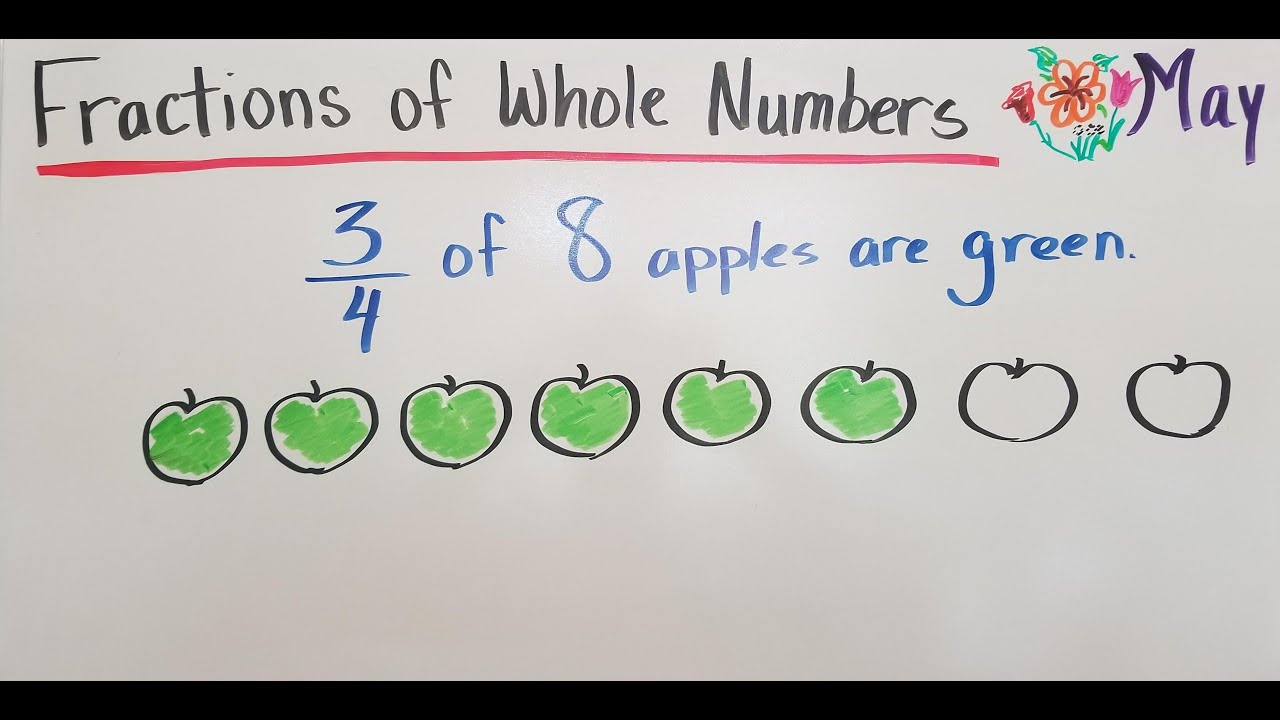 Fractions of Whole Numbers May
3/4 of 8 apples are green.